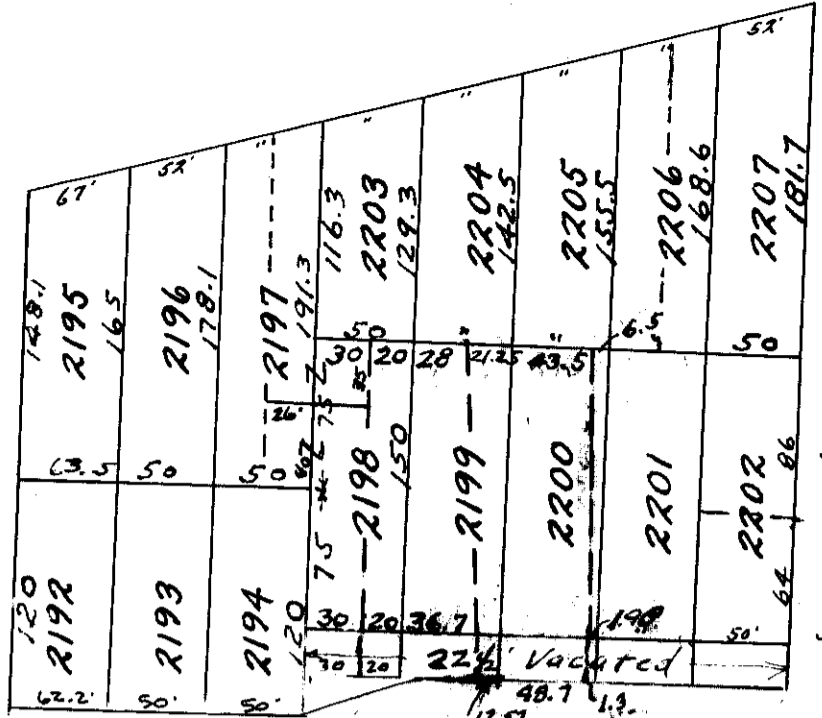 52'
"
"
"
"
"
52'
67'
148.1
2195
165
2196
178.1
2197
191.3
116.3
2203
129.3
2204
142.5
2205
155.5
2206
168.6
2207
181.7
50
"
"
6.5
50
30 20 28 21.25 43.5
35
26'
75
63.5 50 50
75
2198
150
2199
2200
2201
2202
86
64
120
2192
2193
2194
120
30 20 36.7
50'
30 20 22½' Vacated
62.2' 50' 50'
48.7 1.3